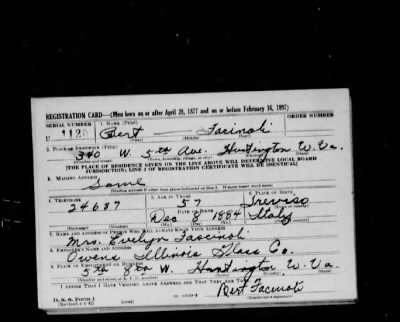 REGISTRATION CARD—(Men born on or after April 28, 1877 and on or before February 16, 1897)
SERIAL NUMBER 1. NAME (Print) ORDER NUMBER
U 1120 Bert Facinoli
(First) (Middle) (Last)
2. PLACE OF RESIDENCE (Print)
340 W. 5th Ave. Huntington W. Va.
(Number and street) (Town, township, village, or city) (County) (State)
[THE PLACE OF RESIDENCE GIVEN ON THE LINE ABOVE WILL DETERMINE LOCAL BOARD
JURISDICTION; LINE 2 OF REGISTRATION CERTIFICATE WILL BE IDENTICAL]
3. MAILING ADDRESS
Same
[Mailing address if other than place indicated on line 2. If same insert word same]
4. TELEPHONE 5. AGE IN YEARS 6. PLACE OF BIRTH
24687 57 Treviso
DATE OF BIRTH (Town or county)
Dec 8 1884 Italy
(Exchange) (Number) (Mo.) (Day) (Yr.) (State or country)
7. NAME AND ADDRESS OF PERSON WHO WILL ALWAYS KNOW YOUR ADDRESS
Mrs. Evelyn Fascinoli
8. EMPLOYER'S NAME AND ADDRESS
Owens Illinois Glass Co.
9. PLACE OF EMPLOYMENT OR BUSINESS
5th 8th W. Huntington W. Va.
(Number and street or R. F. D. number) (Town) (County) (State)
I AFFIRM THAT I HAVE VERIFIED ABOVE ANSWERS AND THAT THEY ARE TRUE.
Bert Facinoli
D. S. S. Form 1
(Revised 4-1-42) (over) (Registrant's signature)